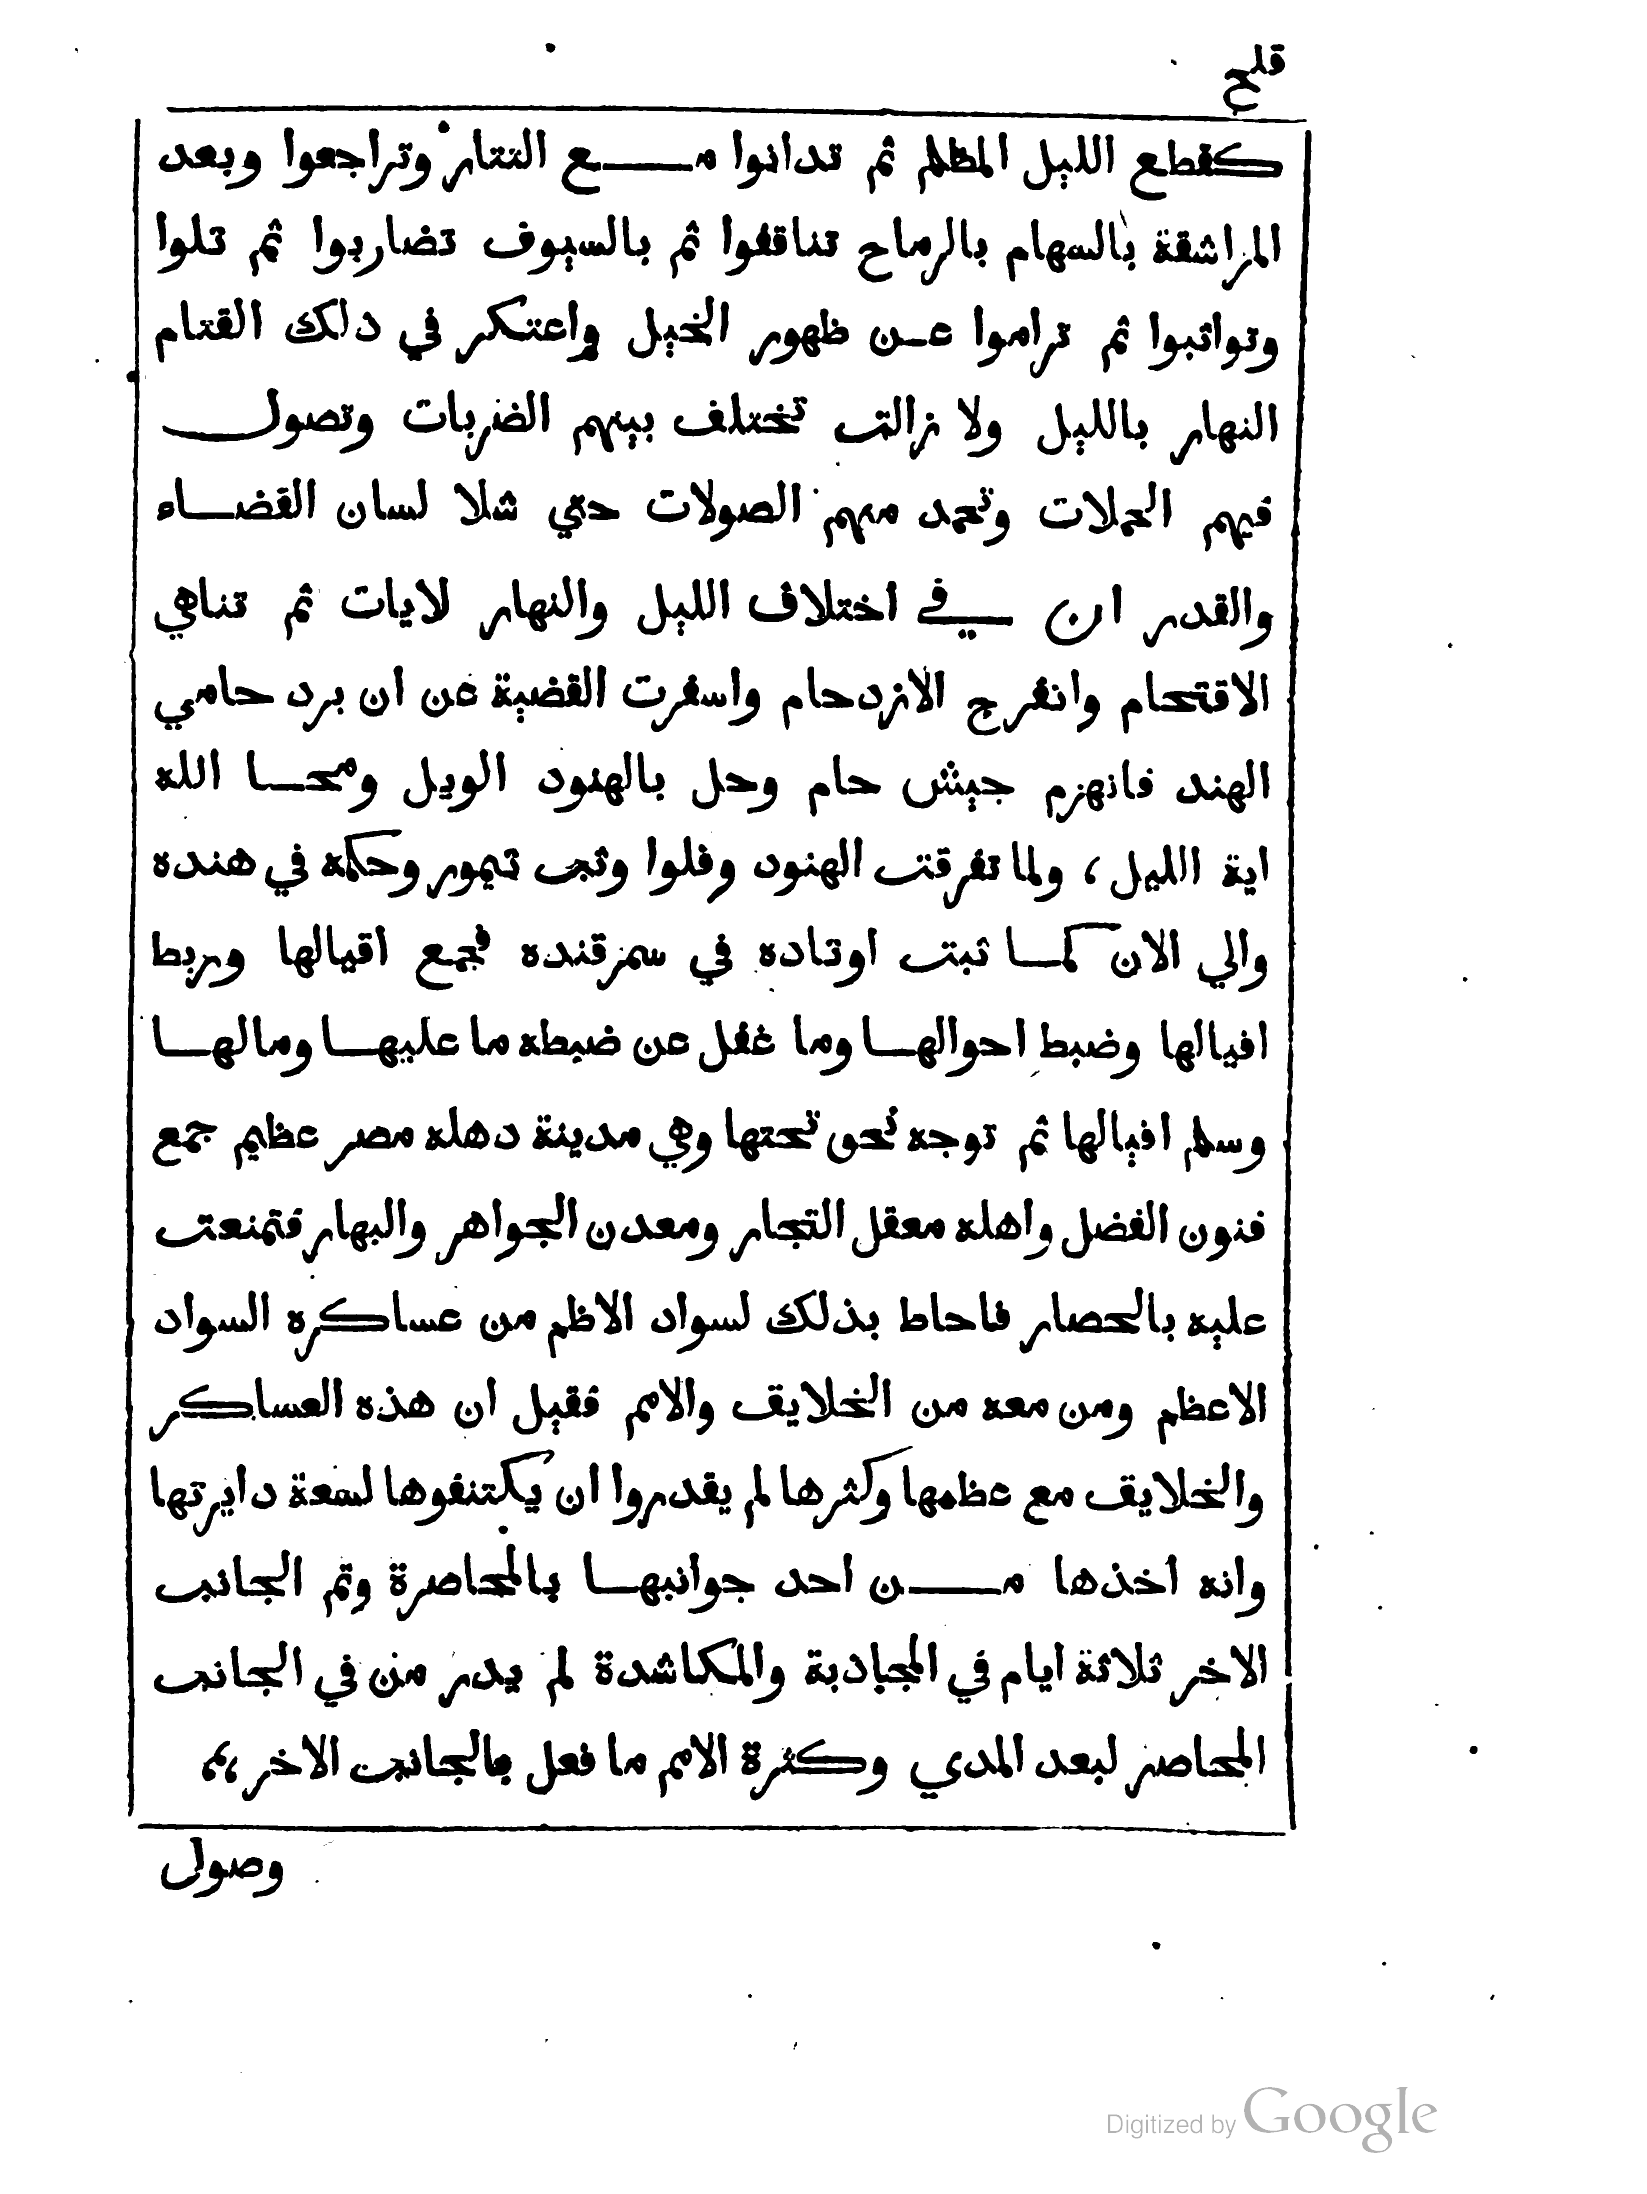 قلح
كقطع الليل المظلم ثم تدانوا مع التتار وتراجعوا وبعد
المراشقة بالسهام بالرماح تناقفوا ثم بالسيوف تضاربوا ثم تلوا
وتواثبوا ثم تراموا عن ظهور الخيل واعتكر في دلك القتام
النهار بالليل ولا زالت تختلف بينهم الضربات وتصول
فيهم الحملات وتحمد منهم الصولات حتي شلا لسان القضاء
والقدر ان في اختلاف الليل والنهار لايات ثم تناهي
الاقتحام وانفرج الازدحام واسفرت القضية عن ان برد حامي
الهند فانهزم جيش حام وحل بالهنود الويل ومحا الله
اية الليل، ولما تفرقت الهنود وفلوا وثبت تيمور وحكمه في هنده
والي الان كما ثبتت اوتاده في سمرقنده فجمع اقيالها وربط
افيالها وضبط احوالها وما غفل عن ضبطه ما عليها ومالها
وسلم افيالها ثم توجه نحو تحتها وهي مدينة دهله مصر عظيم جمع
فنون الفضل واهله معقل التجار ومعدن الجواهر والبهار فتمنعت
عليه بالحصار فاحاط بذلك لسواد الاظم من عساكره السواد
الاعظم ومن معه من الخلايق والامم فقيل ان هذه العساكر
والخلايق مع عظمها وكثرها لم يقدروا ان يكتنفوها لسعة دايرتها
وانه اخذها من احد جوانبها بالمحاصرة وتم الجانب
الاخر ثلاثة ايام في المجادبة والمكاشدة لم يدر من في الجانب
المحاصر لبعد المدي وكثرة الامم ما فعل بالجانب الاخر
وصول
Digitized by Google